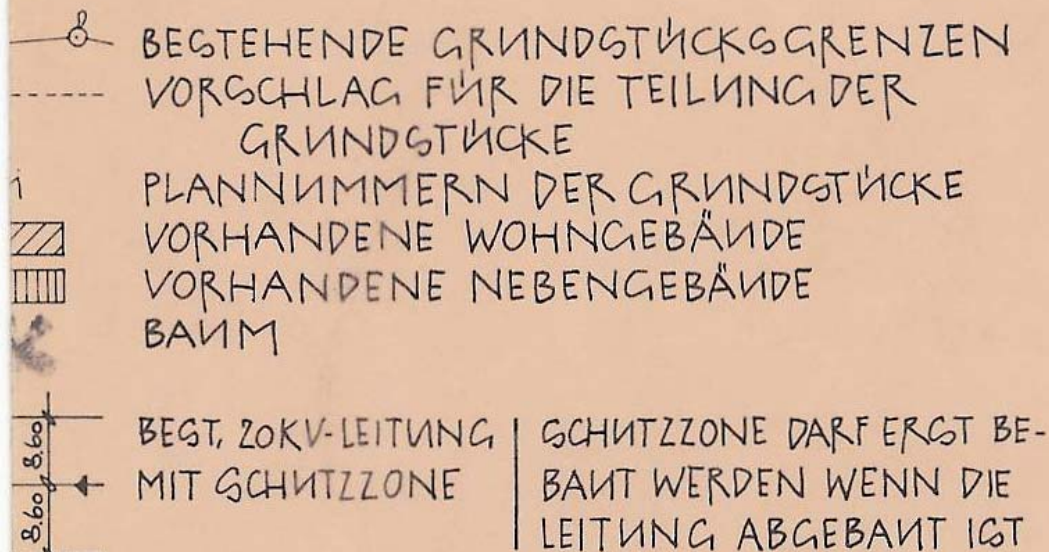 BESTEHENDE GRUNDSTÜCKSGRENZEN
VORSCHLAG FÜR DIE TEILUNG DER
GRUNDSTÜCKE
PLANNUMMERN DER GRUNDSTÜCKE
VORHANDENE WOHNGEBÄUDE
VORHANDENE NEBENGEBÄUDE
BAUM
8.60 8.60
BEST. 20KV-LEITUNG
MIT SCHUTZZONE
SCHUTZZONE DARF ERST BE-
BAUT WERDEN WENN DIE
LEITUNG ABGEBAUT IST